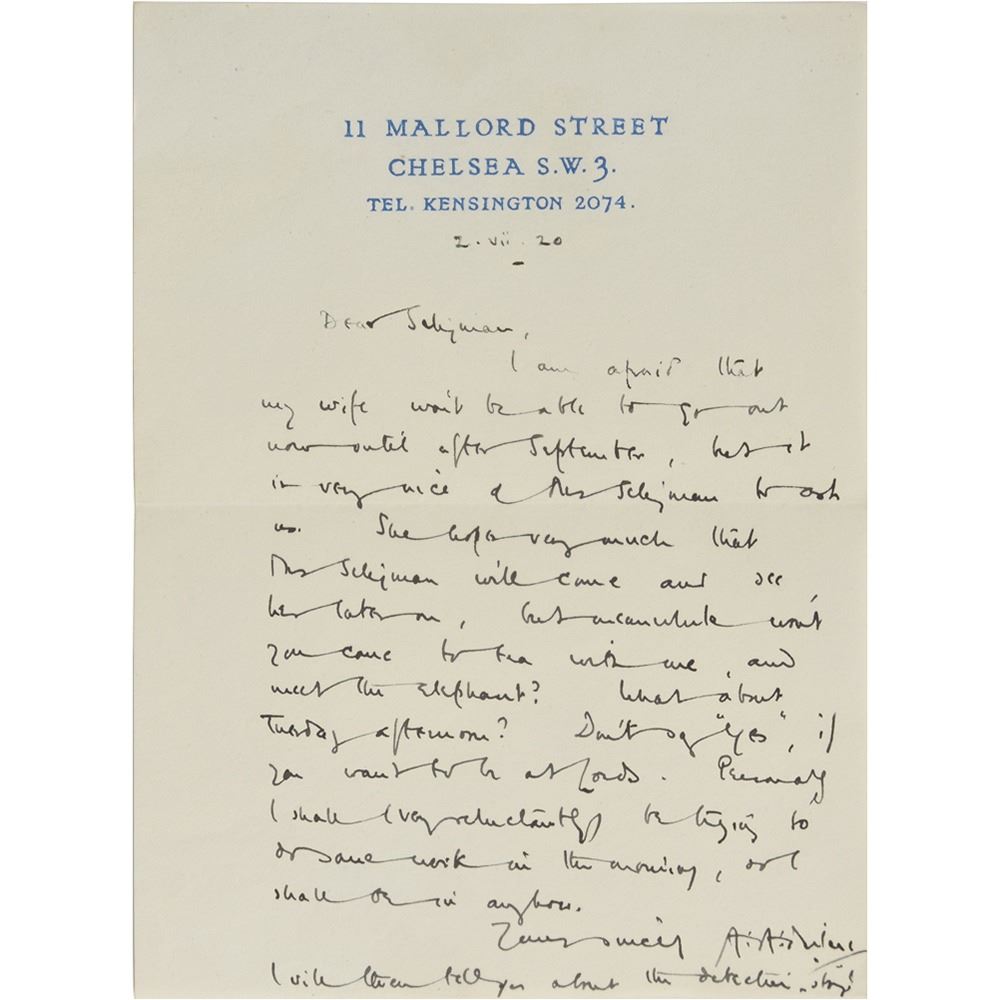 11 MALLORD STREET
CHELSEA S.W.3.
TEL. KENSINGTON 2074.
2.vii.20
Dear Seligman,
I am afraid that
my wife won't be able to go out
now until after September, but it
is very nice of Mrs Seligman to ask
us. She hopes very much that
Mrs Seligman will come and see
her later on, but meanwhile won't
you come to tea with me, and
meet the elephant? What about
Tuesday afternoon? Don't say "Yes", if
you want to be at Lords. Personally
I shall (very reluctantly) be trying to
do some work in the morning, so I
shall be in anyhow.
Yours sincerely A.A.Milne
I will then tell you about the detective story